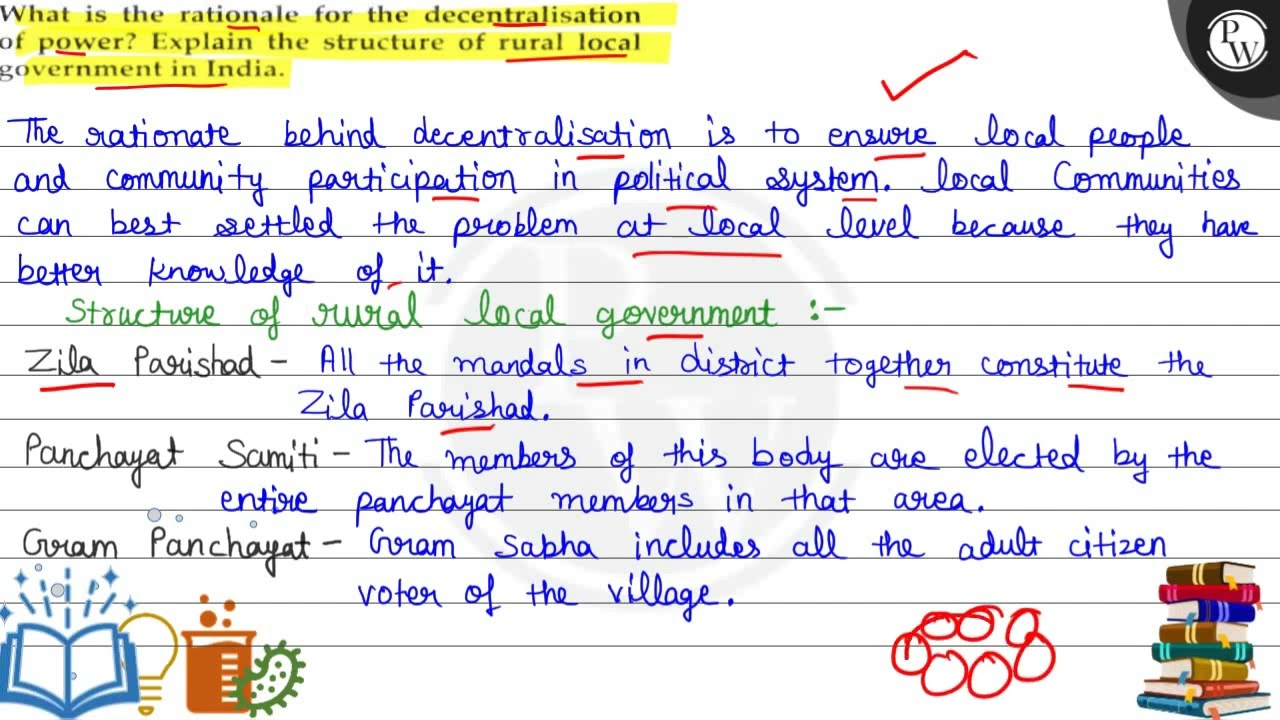 What is the rationale for the decentralisation
of power? Explain the structure of rural local
government in India.
PW
The rationate behind decentralisation is to ensure local people
and community participation in political system. local Communities
can best settled the problem at local level because they have
better knowledge of it.
Structure of rural local government :-
Zila Parishad - All the mandals in district together constitute the
Zila Parishad.
Panchayat Samiti - The members of this body are elected by the
entire panchayat members in that area.
Gram Panchayat - Gram Sabha includes all the adult citizen
voter of the village.